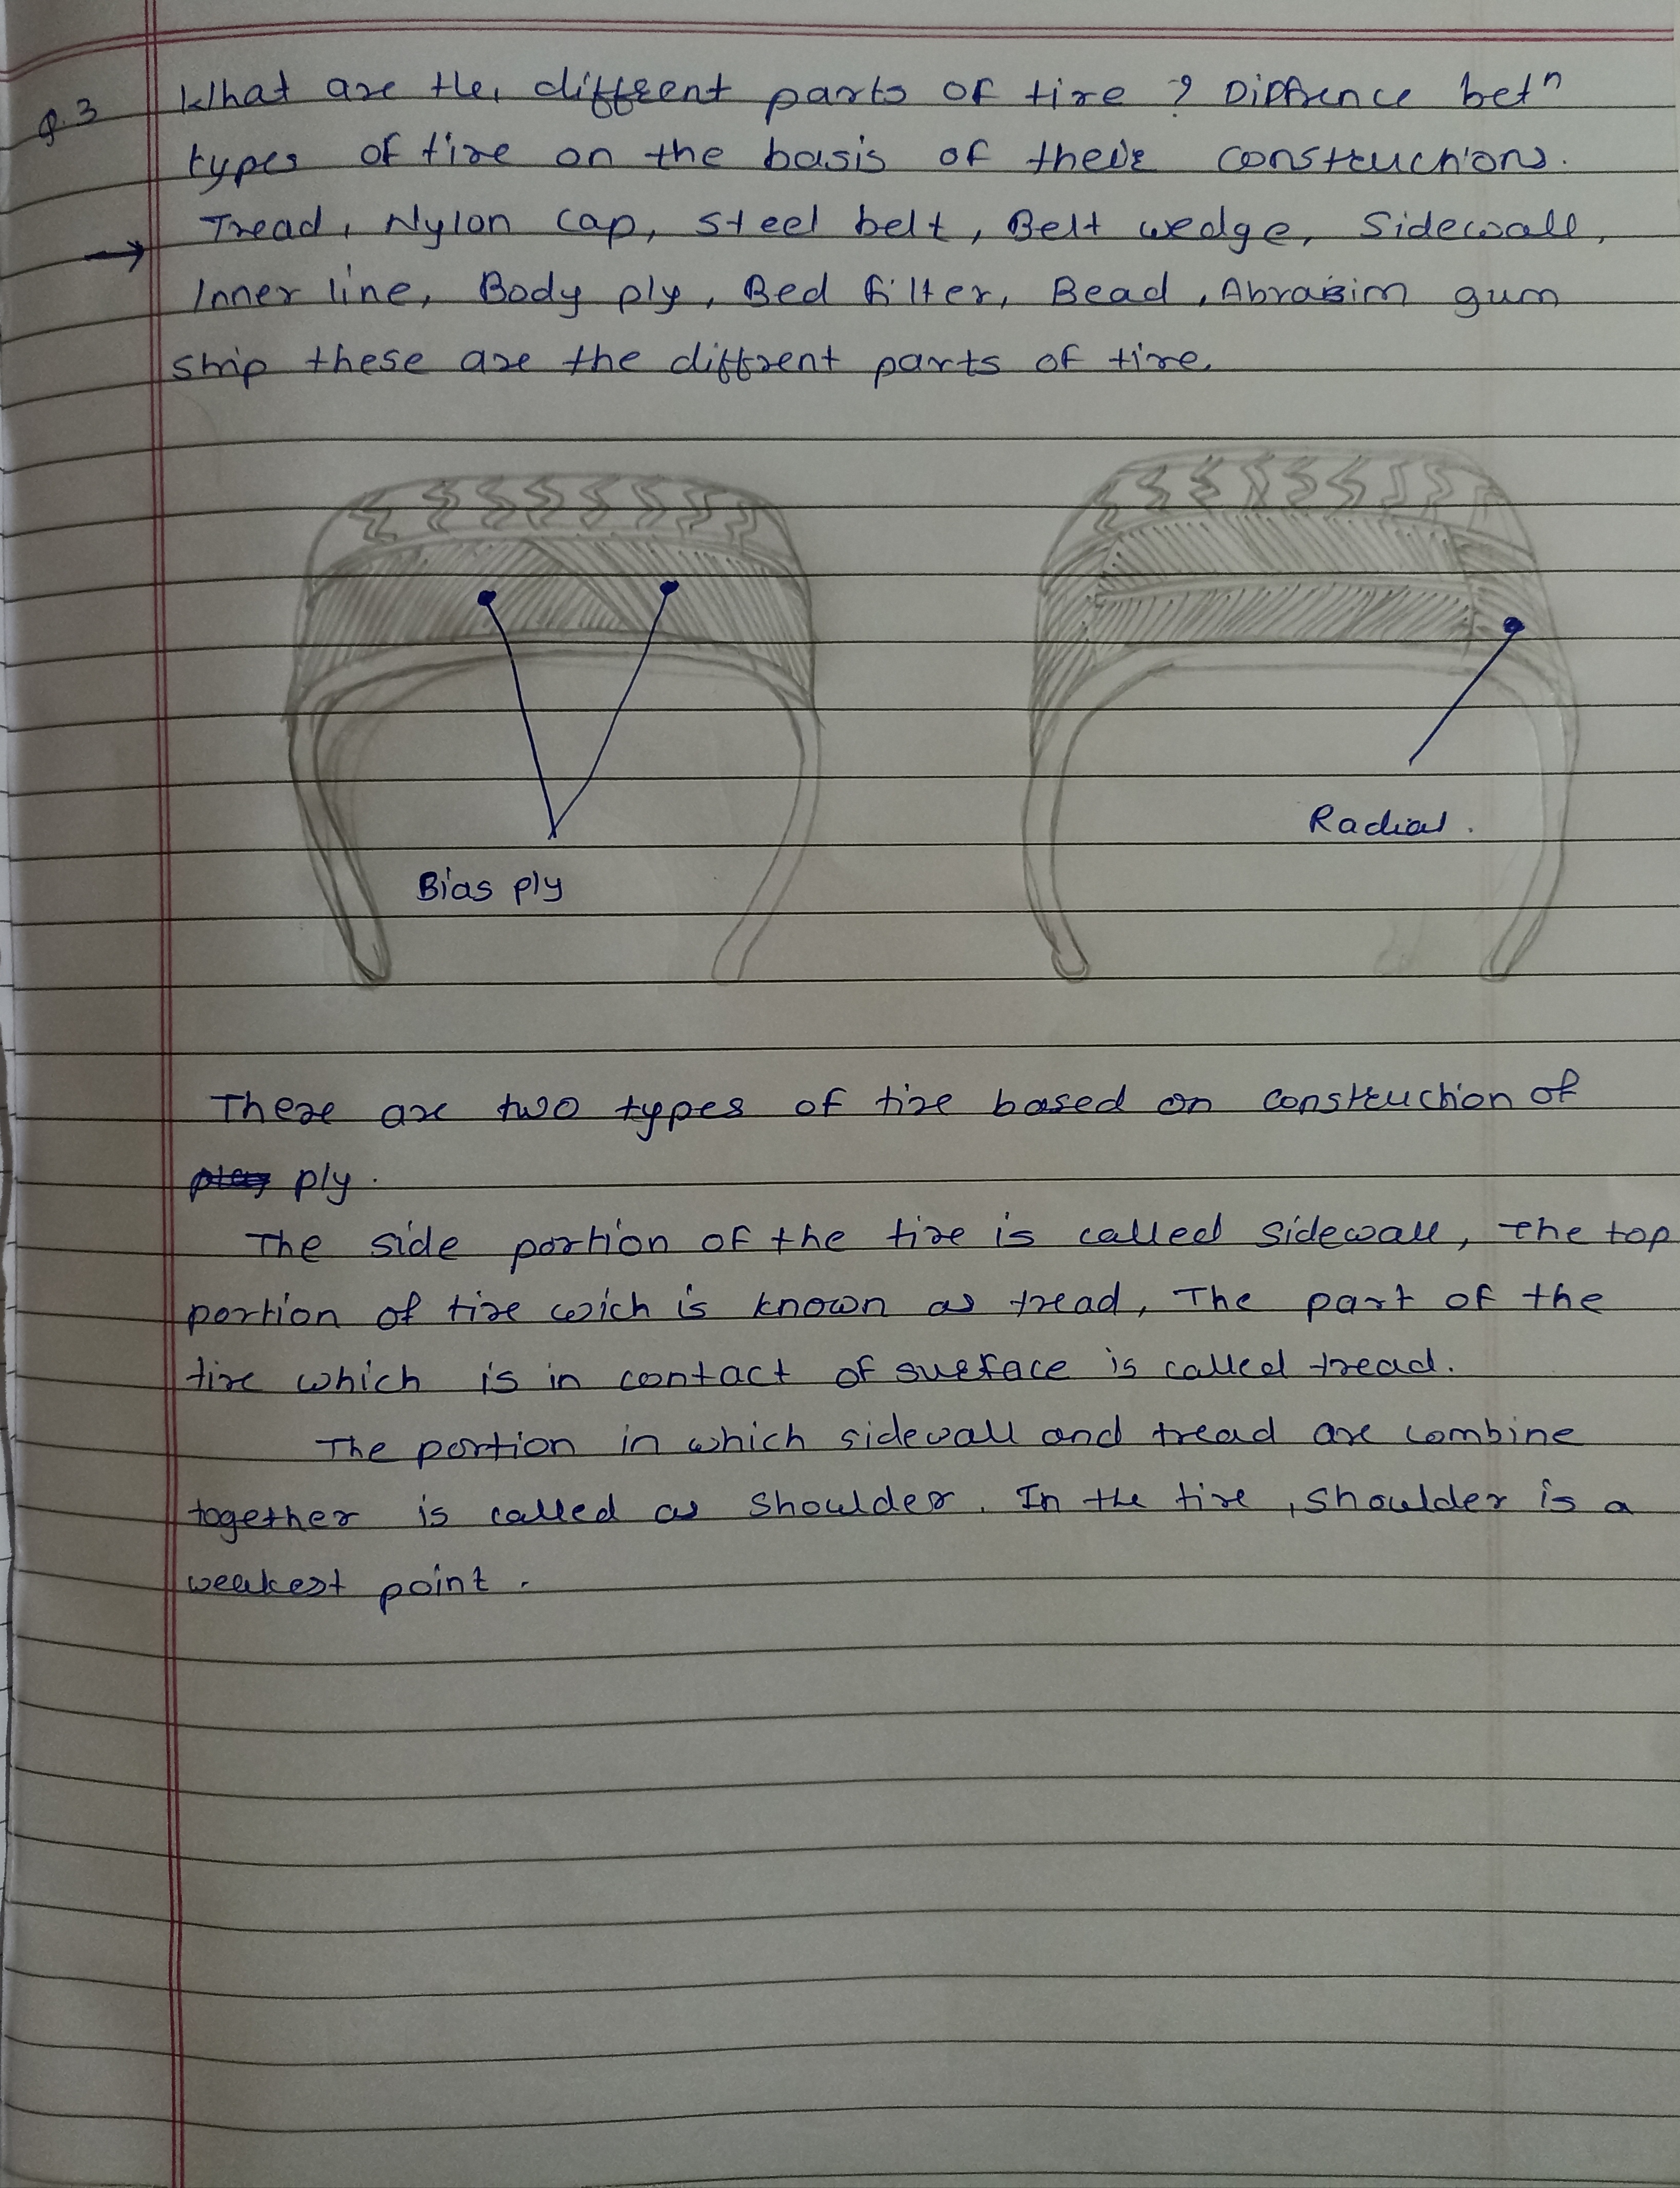 Q.3 What are the, diffrent parts of tire ? Diffrence betn
types of tire on the basis of their constructions.
→ Tread, Nylon cap, steel belt, Belt wedge, Sidewall,
Inner line, Body ply, Bed filter, Bead, Abrasim gum
strip these are the diffrent parts of tire.
Bias ply
Radial.
There are two types of tire based on construction of
ply.
The side portion of the tire is called sidewall, The top
portion of tire wich is known as tread, The part of the
tire which is in contact of surface is called tread.
The portion in which sidewall and tread are combine
together is called as shoulder. In the tire, shoulder is a
weakest point.